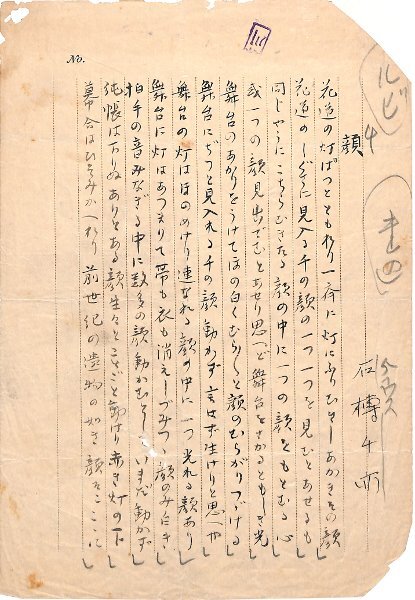 No.
ルビ4
石榑千亦
顔
花道の灯ぱつとともれり一斉に灯にふりむきしあかきその顔
花道のしづかに見入る千の顔の一つ一つを見むとあせるも
同じやうにこちらむきたる顔の中に一つの顔をもとむる心
或一つの顔見出でむとあせり思へど舞台をさかるともしき光
舞台のあかりをうけてほの白くむら〳〵と顔のむらがりつゞける
舞台にぢつと見入れる千の顔動かず言はず生けりと思へや
舞台の灯はほのめけり連なれる顔の中に一つ光れる顔あり
舞台に灯はあつまりて帯も衣も消えしづみつゝ顔のみ
拍手の音みなぎる中に数多の顔動かむとし いまだ動かず
純帳は下りぬありとある顔生々とことごと動けり赤き灯の下
幕合はひそみかへれり前世紀の遺物の如き顔をこゝに